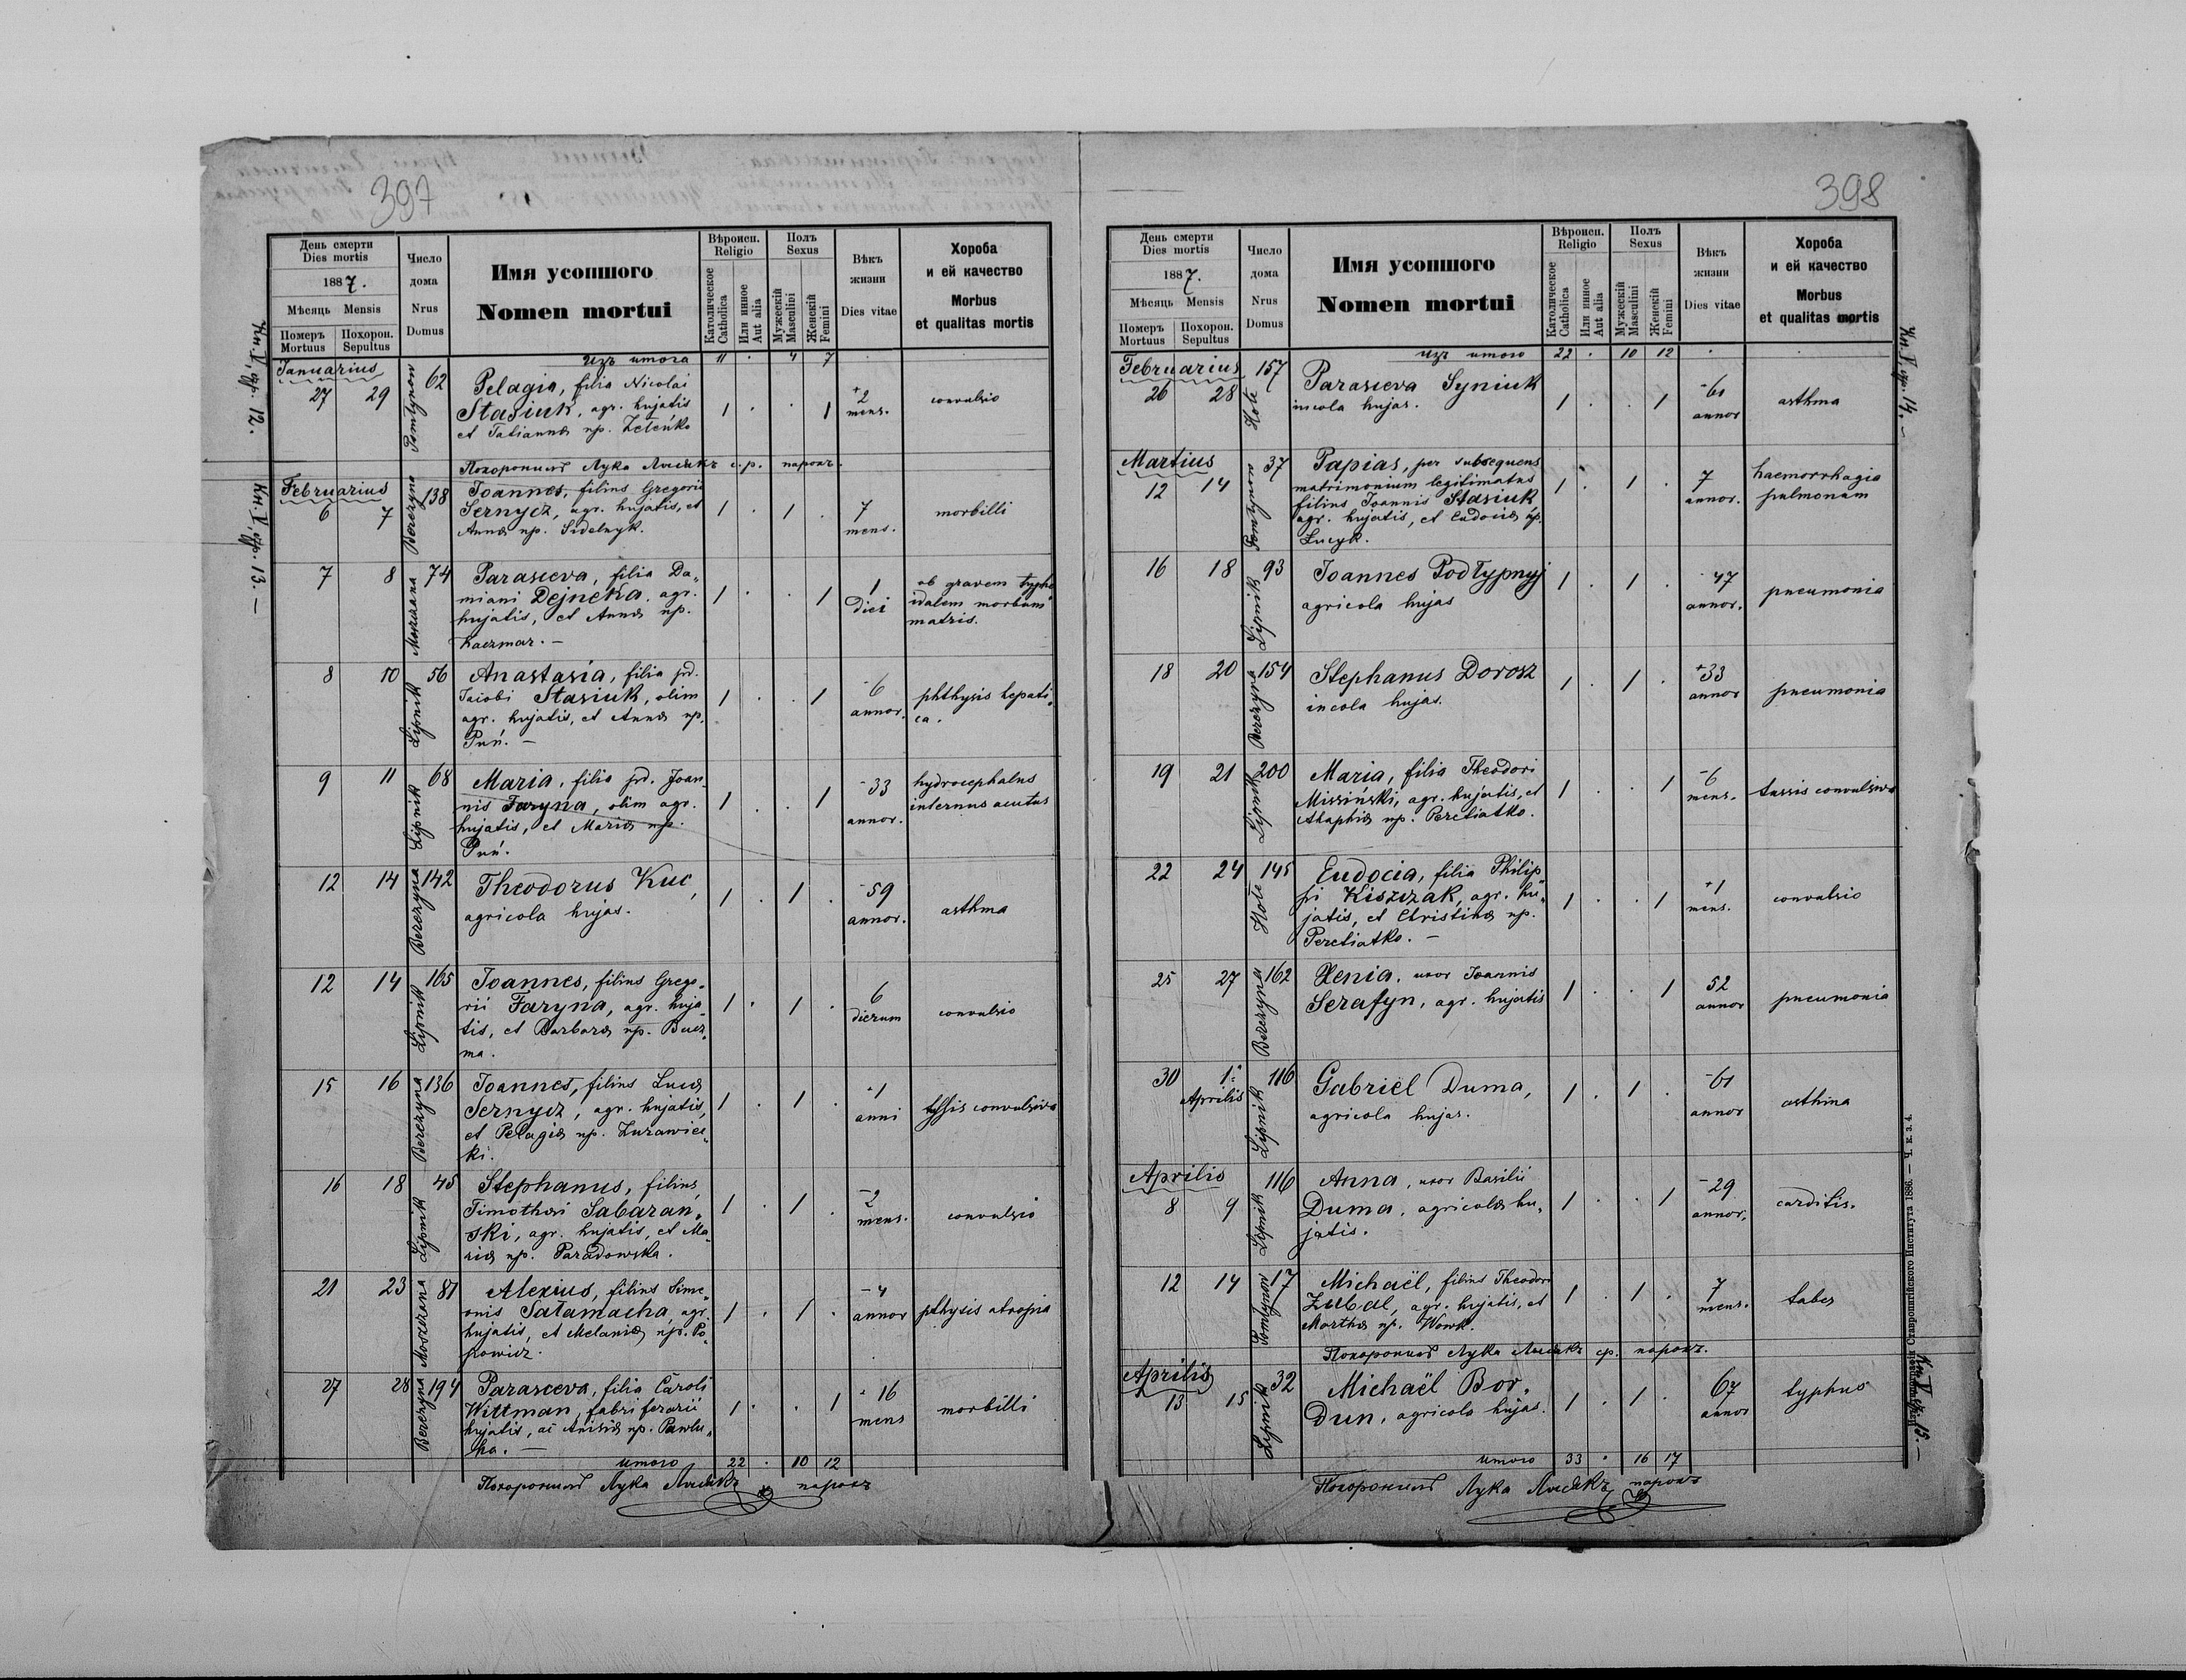 397
День смерти
Dies mortis
1887.
Мѣсяць Mensis
Померъ Mortuus
Похорон. Sepultus
Число дома
Nrus Domus
Имя усопшого
Nomen mortui
Вѣроисп.
Religio
Католическое Catholica
Или инное Aut alia
Полъ
Sexus
Мужескій Masculini
Женскій Femini
Вѣкъ жизни
Dies vitae
Хороба
и ей качество
Morbus
et qualitas mortis
Кн. V, стр. 12.
Изъ итога 11 . 4 7
Januarius
27 29 62 Pelagia, filia Nicolai
Stasiuk, agr. hujatis
et Tatiannæ np. Zelenko
1 . . 1 +2 mens. convulsio
Похоронилъ Лука Лысякъ с.р. парохъ.
Кн. V, стр. 13. —
Februarius
6 7 Berezyna 138 Joannes, filius Gregorii
Sernycz, agr. hujatis, et
Annæ np. Sidelnyk.
1 . 1 . 7 mens. morbilli
7 8 74 Parasceva, filia Da„
miani Dejneka, agr.
hujatis, et Annæ np.
Kaczmar. —
1 . . 1 1 diei
ob gravem typho
idalem morbum
matris.
8 10 Lipnik 56 Anastasia, filia pd.
Jacobi Stasiuk, olim
agr. hujatis, et Annæ np.
Puń. —
1 . . 1 -6 annor.
phthysis hepati„
ca.
9 11 Lipnik 68 Maria, filia pd. Joan„
nis Faryna, olim agr.
hujatis, et Mariæ np.
Puń.
1 . . 1 -33 annor.
hydrocephalus
internus acutus
12 14 Berezyna 142 Theodorus Kuc,
agricola hujas.
1 . 1 . -59 annor. asthma
12 14 Lipnik 165 Joannes, filius Grego„
rii Faryna, agr. huja„
tis, et Barbaræ np. Bucz„
ma.
1 . 1 . 6 dierum convulsio
15 16 Berezyna 136 Joannes, filius Lucæ
Sernycz, agr. hujatis,
et Pelagiæ np. Zurawiec„
ki.
1 . 1 . -1 anni tussis convulsiva
16 18 Lipnik 45 Stephanus, filius
Timothei Sabarań„
ski, agr. hujatis, et Ma„
riæ np. Paradowska.
1 . 1 . -2 mens. convulsio
21 23 Moszczana 81 Alexius, filius Sime„
onis Sałamacha, agr.
hujatis, et Melaniæ np. Po„
powicz.
1 . 1 . -4 annor pthysis atropia
27 28 Berezyna 194 Parasceva, filia Caroli
Wittman, fabri ferarii
hujatis, ac Anisiæ np. Pawlu„
ha. —
1 . . 1 -16 mens morbilli
Итого 22 . 10 12
Похоронилъ Лука Лысякъ парохъ
398
День смерти
Dies mortis
1887.
Мѣсяць Mensis
Померъ Mortuus
Похорон. Sepultus
Число дома
Nrus Domus
Имя усопшого
Nomen mortui
Вѣроисп.
Religio
Католическое Catholica
Или инное Aut alia
Полъ
Sexus
Мужескій Masculini
Женскій Femini
Вѣкъ жизни
Dies vitae
Хороба
и ей качество
Morbus
et qualitas mortis
Кн. V, стр. 14. —
Изъ итого 22 . 10 12
Februarius
26 28 Hołe 157 Parasceva Syniuk
incola hujas.
1 . . 1 -61 annor asthma
Martius
12 14 37 Papias, per subsequens
matrimonium legitimatus
filius Joannis Stasiuk
agr. hujatis, et Eudociæ np.
Lucyk.
1 . 1 . 7 annor.
haemorrhagia
pulmonum
16 18 Lipnik 93 Joannes Podłypnyj
agricola hujas
1 . 1 . -47 annor. pneumonia
18 20 Berezyna 154 Stephanus Dorosz
incola hujas.
1 . 1 . +33 annor pneumonia
19 21 Lipnik 200 Maria, filia Theodori
Missiński, agr. hujatis, et
Ahaphiæ np. Peretiatko.
1 . . 1 -6 mens. tussis convulsiva
22 24 Hołe 145 Eudocia, filia Philip„
pi Kiszczak, agr. hu„
jatis, et Christinæ np.
Peretiatko. —
1 . . 1 +1 mens. convulsio
25 27 Berezyna 162 Xenia, uxor Joannis
Serafyn, agr. hujatis
1 . . 1 52 annor pneumonia
30 1. Aprilis Lipnik 116 Gabriël Duma,
agricola hujas.
1 . 1 . -61 annor asthma
Aprilis
8 9 Lipnik 116 Anna, uxor Basilii
Duma, agricolæ hu„
jatis.
1 . . 1 -29 annor. carditis.
12 14 17 Michaël, filius Theodori
Zubal, agr. hujatis, et
Marthæ np. Wowk.
1 . 1 . 7 mens. tabes
Похоронилъ Лука Лысякъ ср. парохъ.
Aprilis
13 15 Lipnik 32 Michaël Bor„
dun, agricola hujas.
1 . 1 . 67 annor typhus
Итого 33 . 16 17
Похоронилъ Лука Лысякъ парохъ
Ставропигійского Института 1886. — Ч. к. з. 4.
Кн. V, стр. 15. —